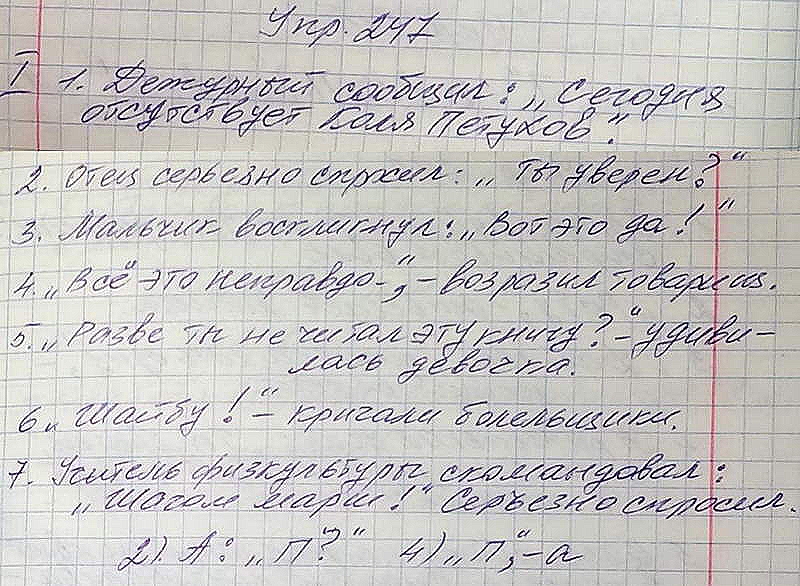 Упр. 247
I 1. Дежурный сообщил: „Сегодня
отсутствует Коля Петухов".
2. Отец серьезно спросил: „Ты уверен?"
3. Мальчик воскликнул: „Вот это да!"
4. „Всё это неправдо-", - возразил товарищ.
5. „Разве ты не читал эту книгу?-" удиви-
лась девочка.
6 „Шайбу!" - кричали болельщики.
7. Учитель физкультуры скомандовал:
„Шагом марш!" Серьезно спросил.
2). А: „П?" 4) „П", - а